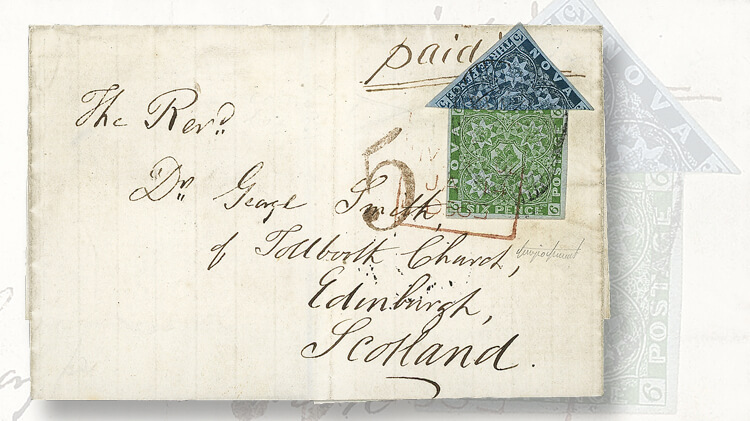 paid
NOVA
NOVA
SIX PENCE
POSTAGE
5
The Revd.
Dr. George Smith,
of Tollbooth Church,
Edinburgh,
Scotland.
NOVA
POSTAGE
6